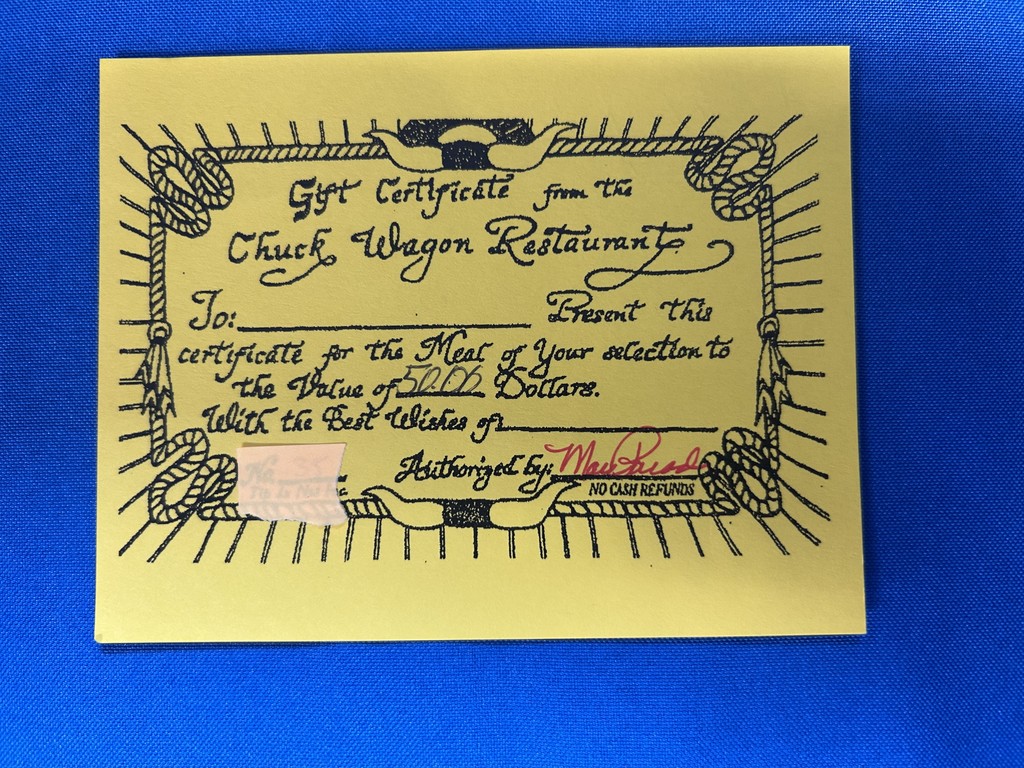 Gift Certificate from the
Chuck Wagon Restaurant
To: Present this
certificate for the Meal of Your selection to
the Value of 50.00 Dollars.
With the Best Wishes of:
Authorized by:
NO CASH REFUNDS
No. 35